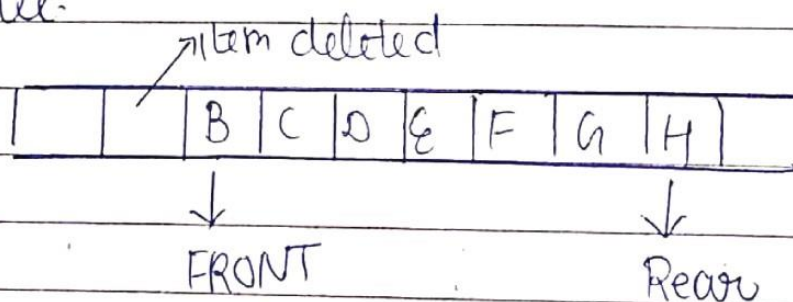 item deleted
B C D E F G H
FRONT Rear